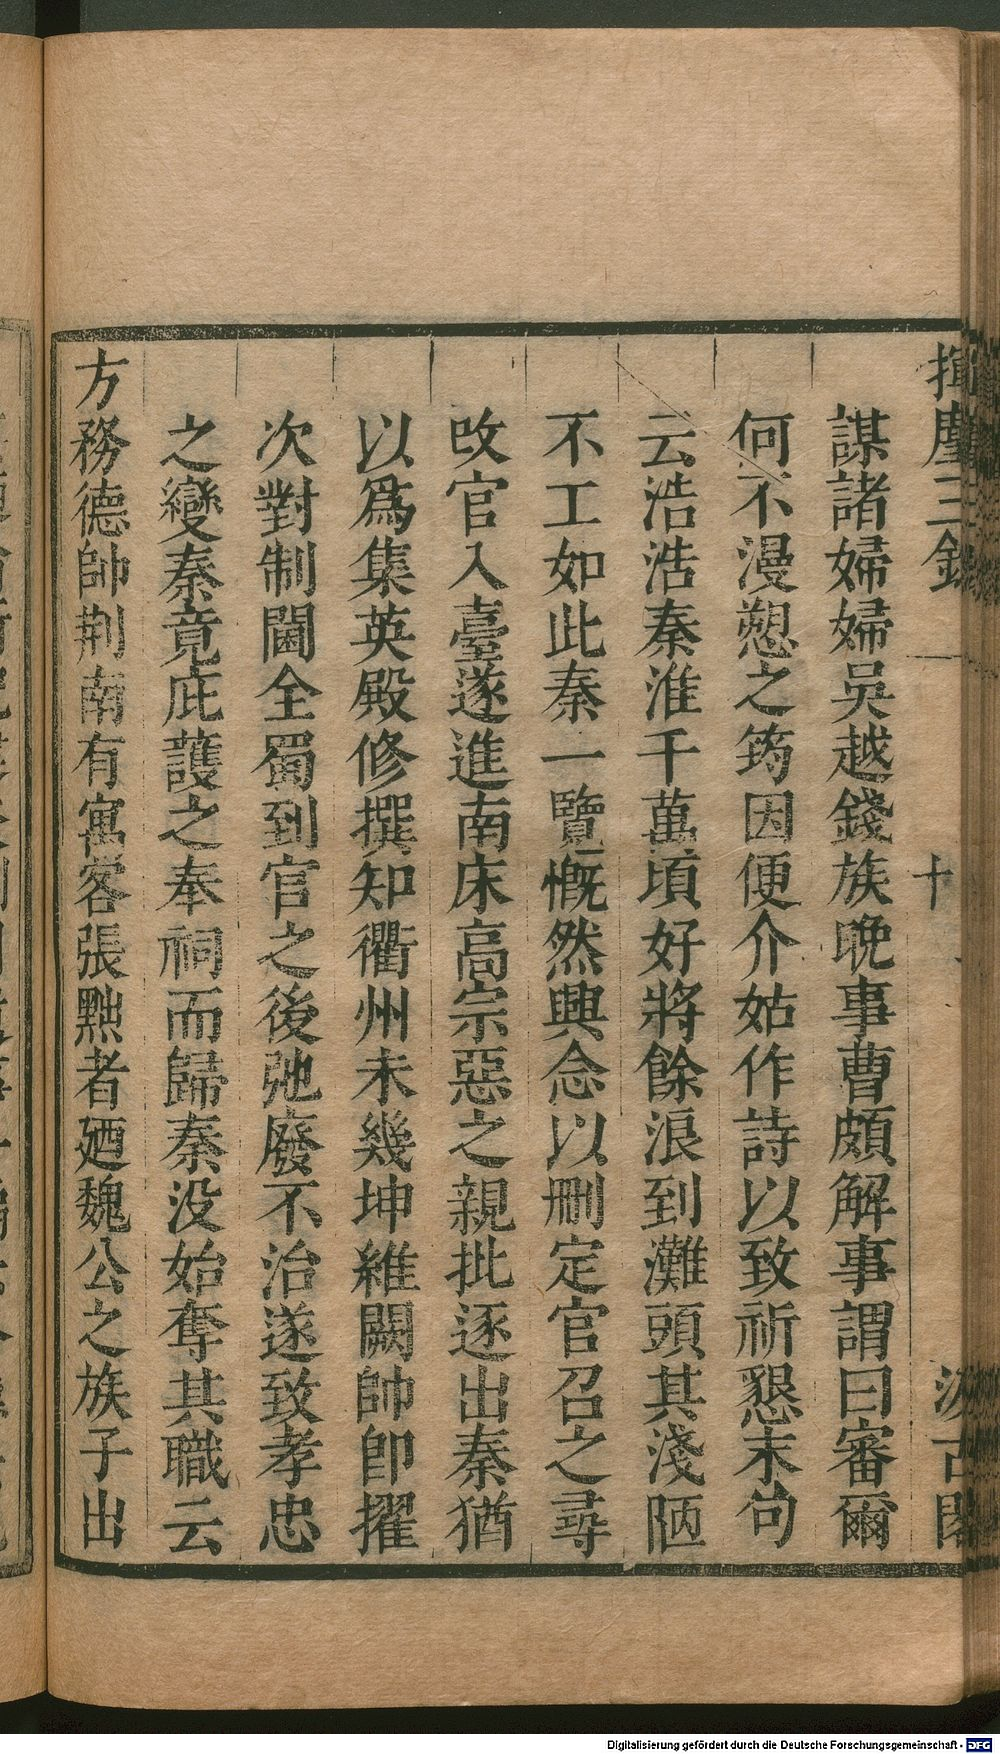 揮麈三錄
十
汲古閣
謀諸婦婦吳越錢族晚事曹頗解事謂曰審爾
何不漫愬之筠因便介姑作詩以致祈懇末句
云浩浩秦淮千萬頃好將餘浪到灘頭其淺陋
不工如此秦一覽慨然興念以刪定官召之尋
改官入臺遂進南床高宗惡之親批逐出秦猶
以爲集英殿修撰知衢州未幾坤維闕帥卽擢
次對制閫全蜀到官之後弛廢不治遂致孝忠
之變秦竟庇護之奉祠而歸秦没始奪其職云
方務德帥荆南有寓客張黜者廼魏公之族子出
Digitalisierung gefördert durch die Deutsche Forschungsgemeinschaft - DFG